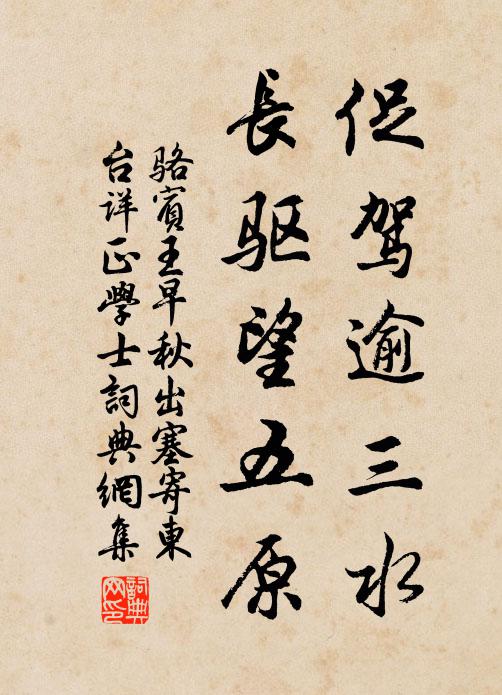 促驾逾三水
長驱望五原
骆賓王早秋出塞寄東
台详正學士詞典網集
詞典
网印